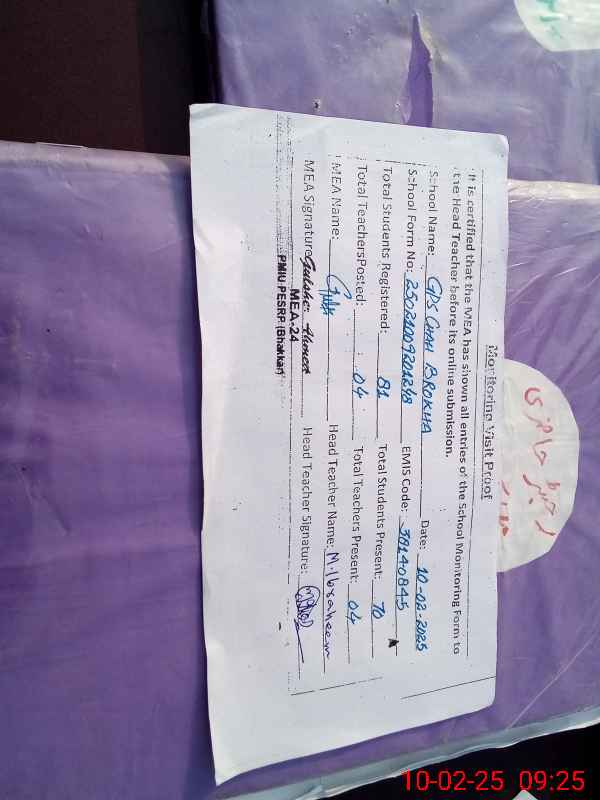 Monitoring Visit Proof
It is certified that the MEA has shown all entries of the School Monitoring Form to
the Head Teacher before its online submission.
School Name: GPS CHAH BROKHA Date: 10-02-2025
School Form No: 25021009201248 EMIS Code: 38140845
Total Students Registered: 81 Total Students Present: 70
Total TeachersPosted: 04 Total Teachers Present: 04
MEA Name: Head Teacher Name: M.Ibraheem
MEA Signature: Gulsher Ahmed Head Teacher Signature:
MEA-24
PMIU-PESRP (Bhakkar)
10-02-25 09:25